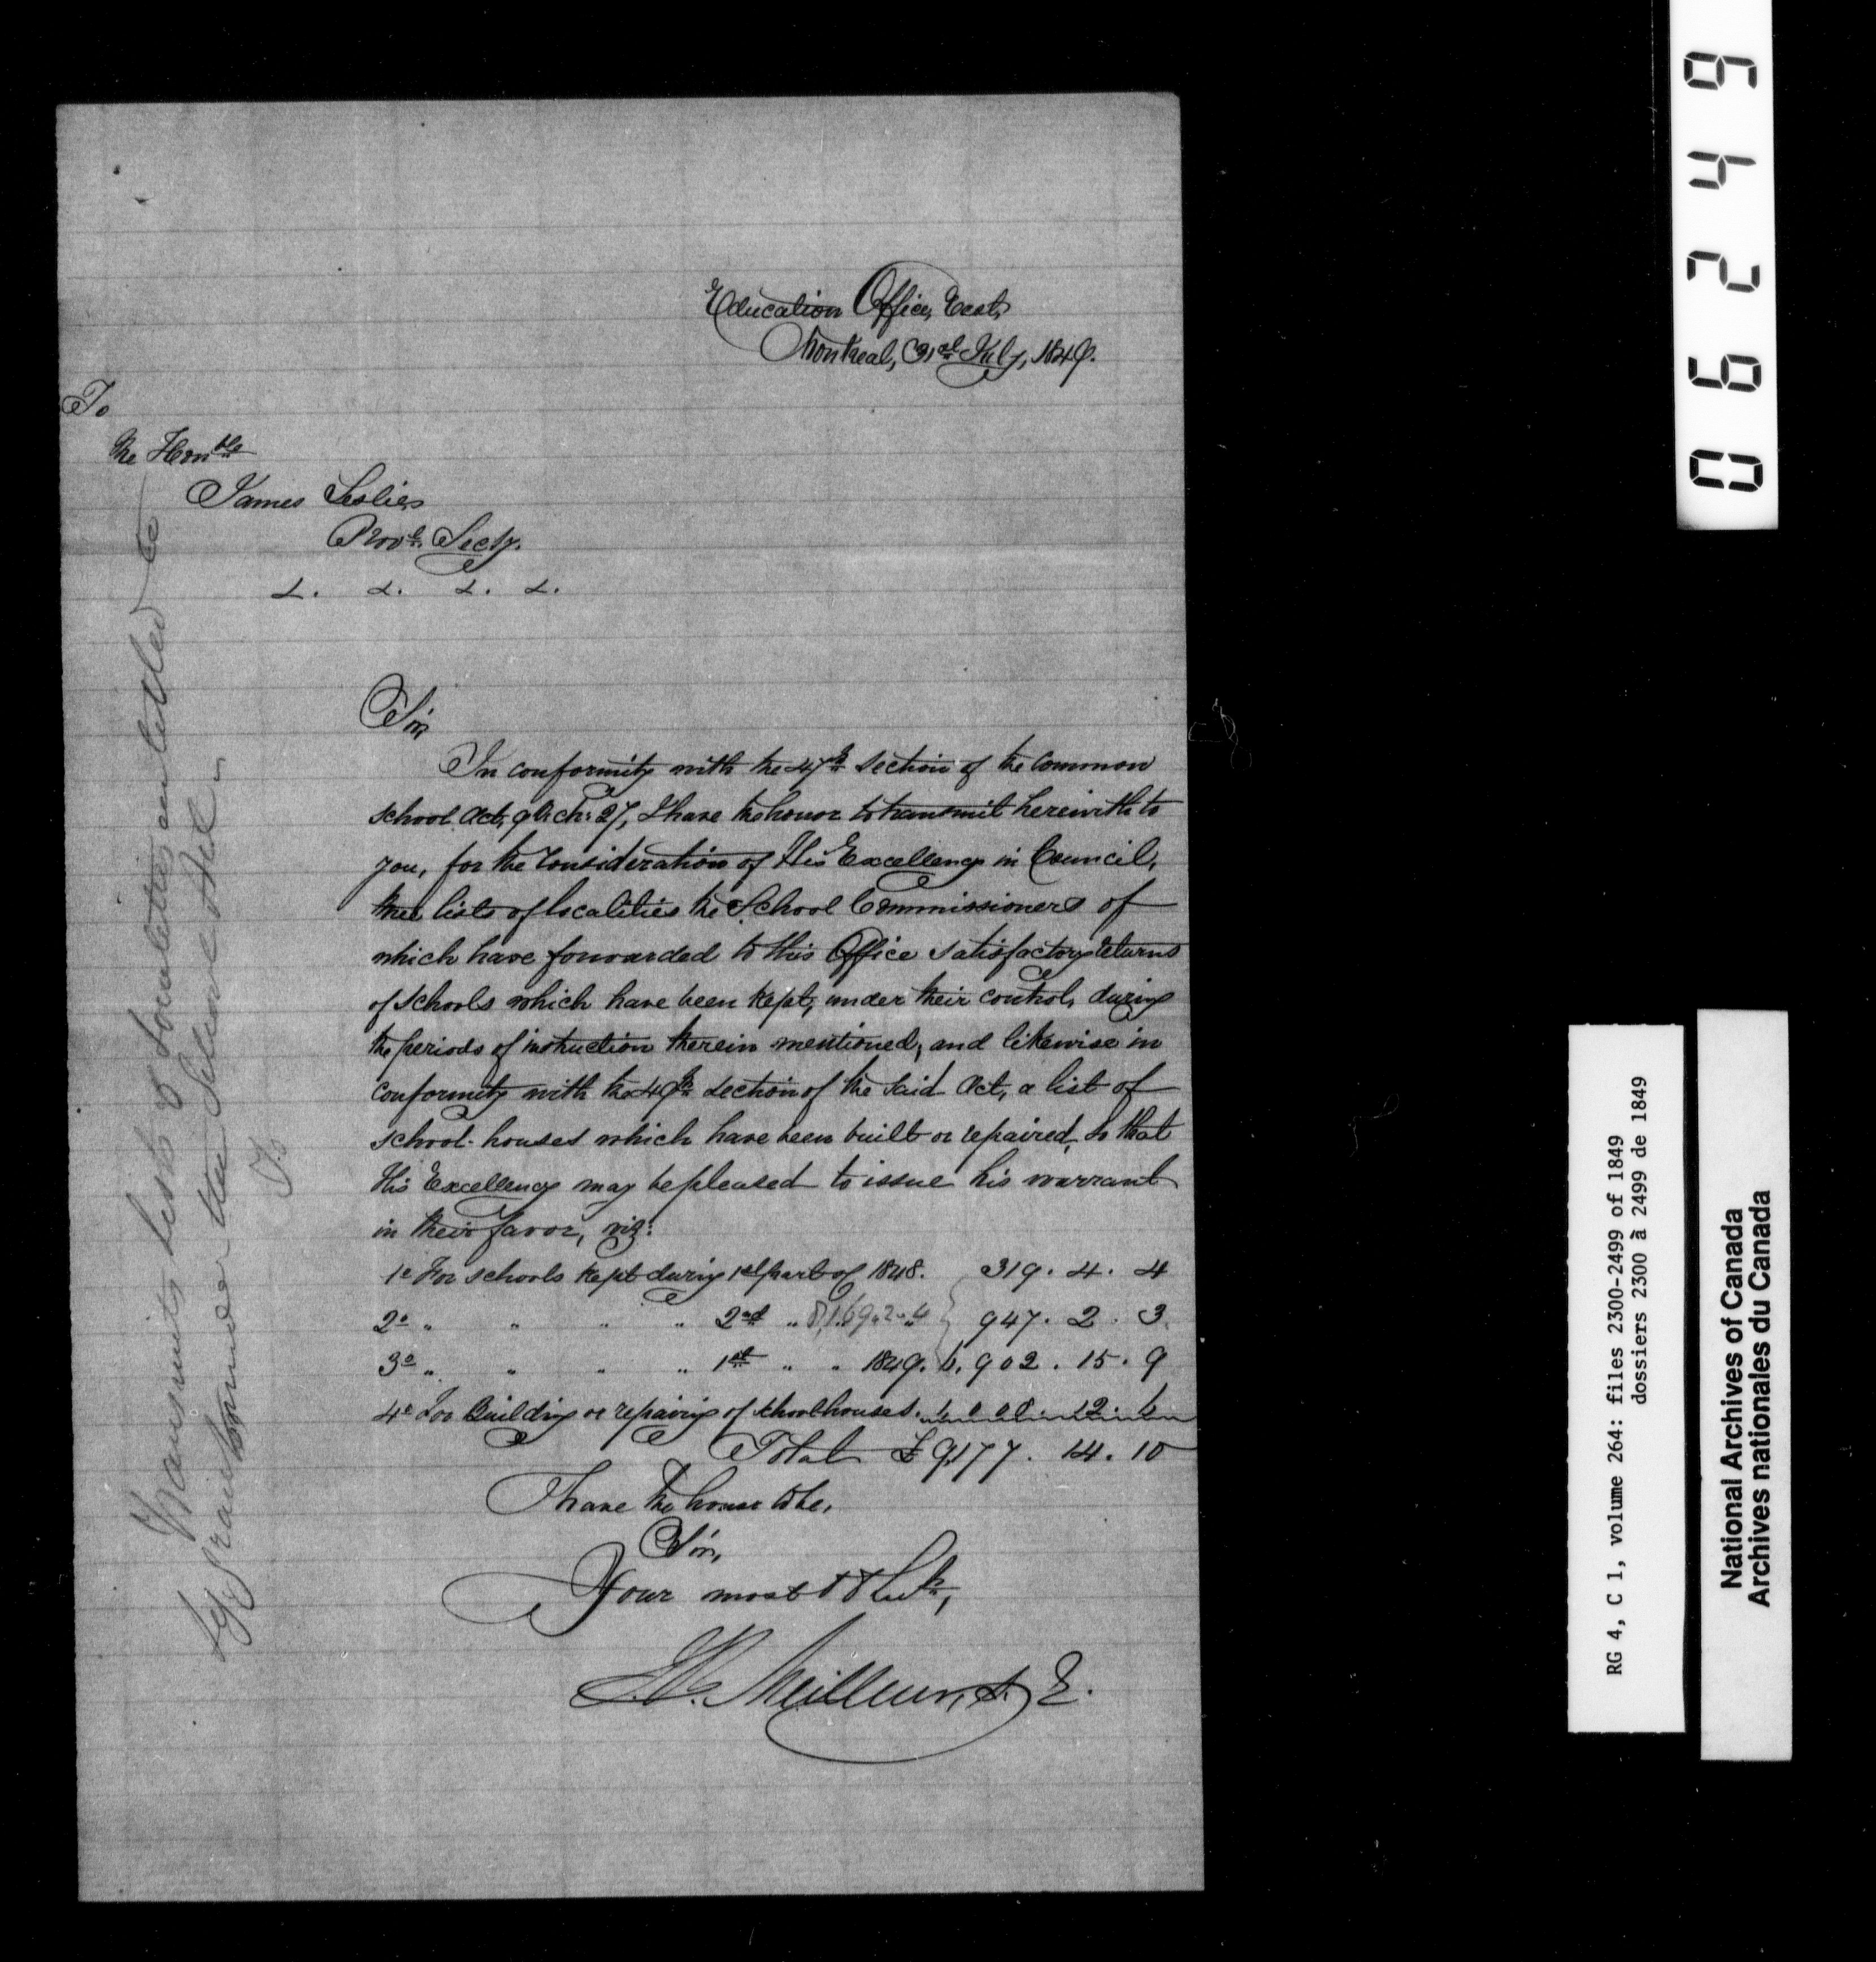 Education Office, East,
Montreal, 31st July, 1849.
To
the Honble
James Leslie,
Provl. Secy.
&. &. &. &.
Sir,
In conformity with the 47th section of the Common
school Act, 9th ch: 27, I have the honor to transmit herewith to
you, for the consideration of His Excellency in Council,
three lists of localities the School Commissioners of
which have forwarded to this Office satisfactory returns
of schools which have been kept, under their control, during
the periods of instruction therein mentioned, and likewise in
conformity with the 49th section of the said Act, a list of
school-houses which have been built or repaired, so that
His Excellency may be pleased to issue his warrant
in their favor, viz:
1o For schools kept during 1st part of 1848. 319. 4. 4
2o " " " " 2nd " 8,169. 2. 4 947. 2. 3
3o " " " " 1st " " 1849. 6.902. 15. 9
4o For Building or repairing of schoolhouses. 1.008. 12. 6
Total £9,177. 14. 10
I have the honor to be,
Sir,
Your most
J.B. Meilleur, S. E.
Transmits Lists of Localities entitled to
Grants under the School Act.
06249
RG 4, C 1, volume 264: files 2300-2499 of 1849
dossiers 2300 à 2499 de 1849
National Archives of Canada
Archives nationales du Canada